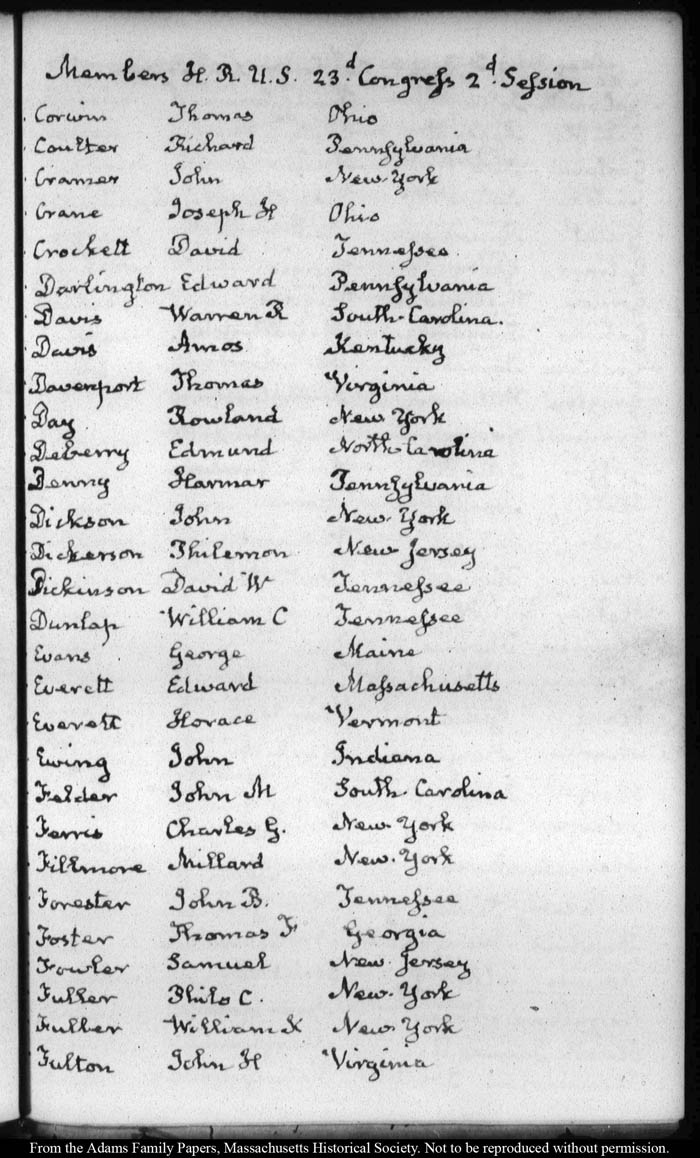 Members H. R. U. S. 23.d Congress 2.d Session
Corwin Thomas Ohio
Coulter Richard Pennsylvania
Cramer John New-York
Crane Joseph H Ohio
Crockett David Tennessee
Darlington Edward Pennsylvania
Davis Warren R South-Carolina.
Davis Amos Kentucky
Davenport Thomas Virginia
Day Rowland New York
Deberry Edmund North-Carolina
Denny Harmar Pennsylvania
Dickson John New-York
Dickerson Philemon New Jersey
Dickinson David W Tennessee
Dunlap William C Tennessee
Evans George Maine
Everett Edward Massachusetts
Everett Horace Vermont
Ewing John Indiana
Felder John M South-Carolina
Ferris Charles G. New-York
Fillmore Millard New-York
Forester John B. Tennessee
Foster Thomas F Georgia
Fowler Samuel New Jersey
Fuller Philo C. New-York
Fuller William K New-York
Fulton John H Virginia
From the Adams Family Papers, Massachusetts Historical Society. Not to be reproduced without permission.